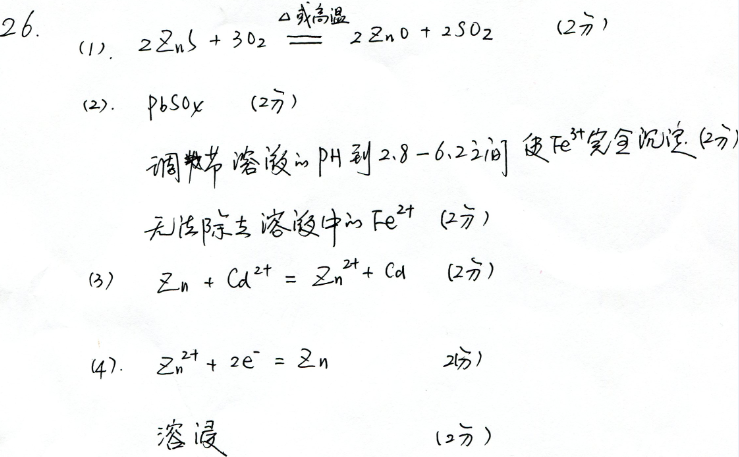 26.
(1). 2ZnS + 3O₂ ═(△或高温) 2ZnO + 2SO₂ (2分)
(2). PbSO₄ (2分)
调节溶液的PH到2.8-6.2之间 使Fe³⁺完全沉淀 (2分)
无法除去溶液中的Fe²⁺ (2分)
(3) Zn + Cd²⁺ = Zn²⁺ + Cd (2分)
(4). Zn²⁺ + 2e⁻ = Zn 2分)
溶浸 (2分)